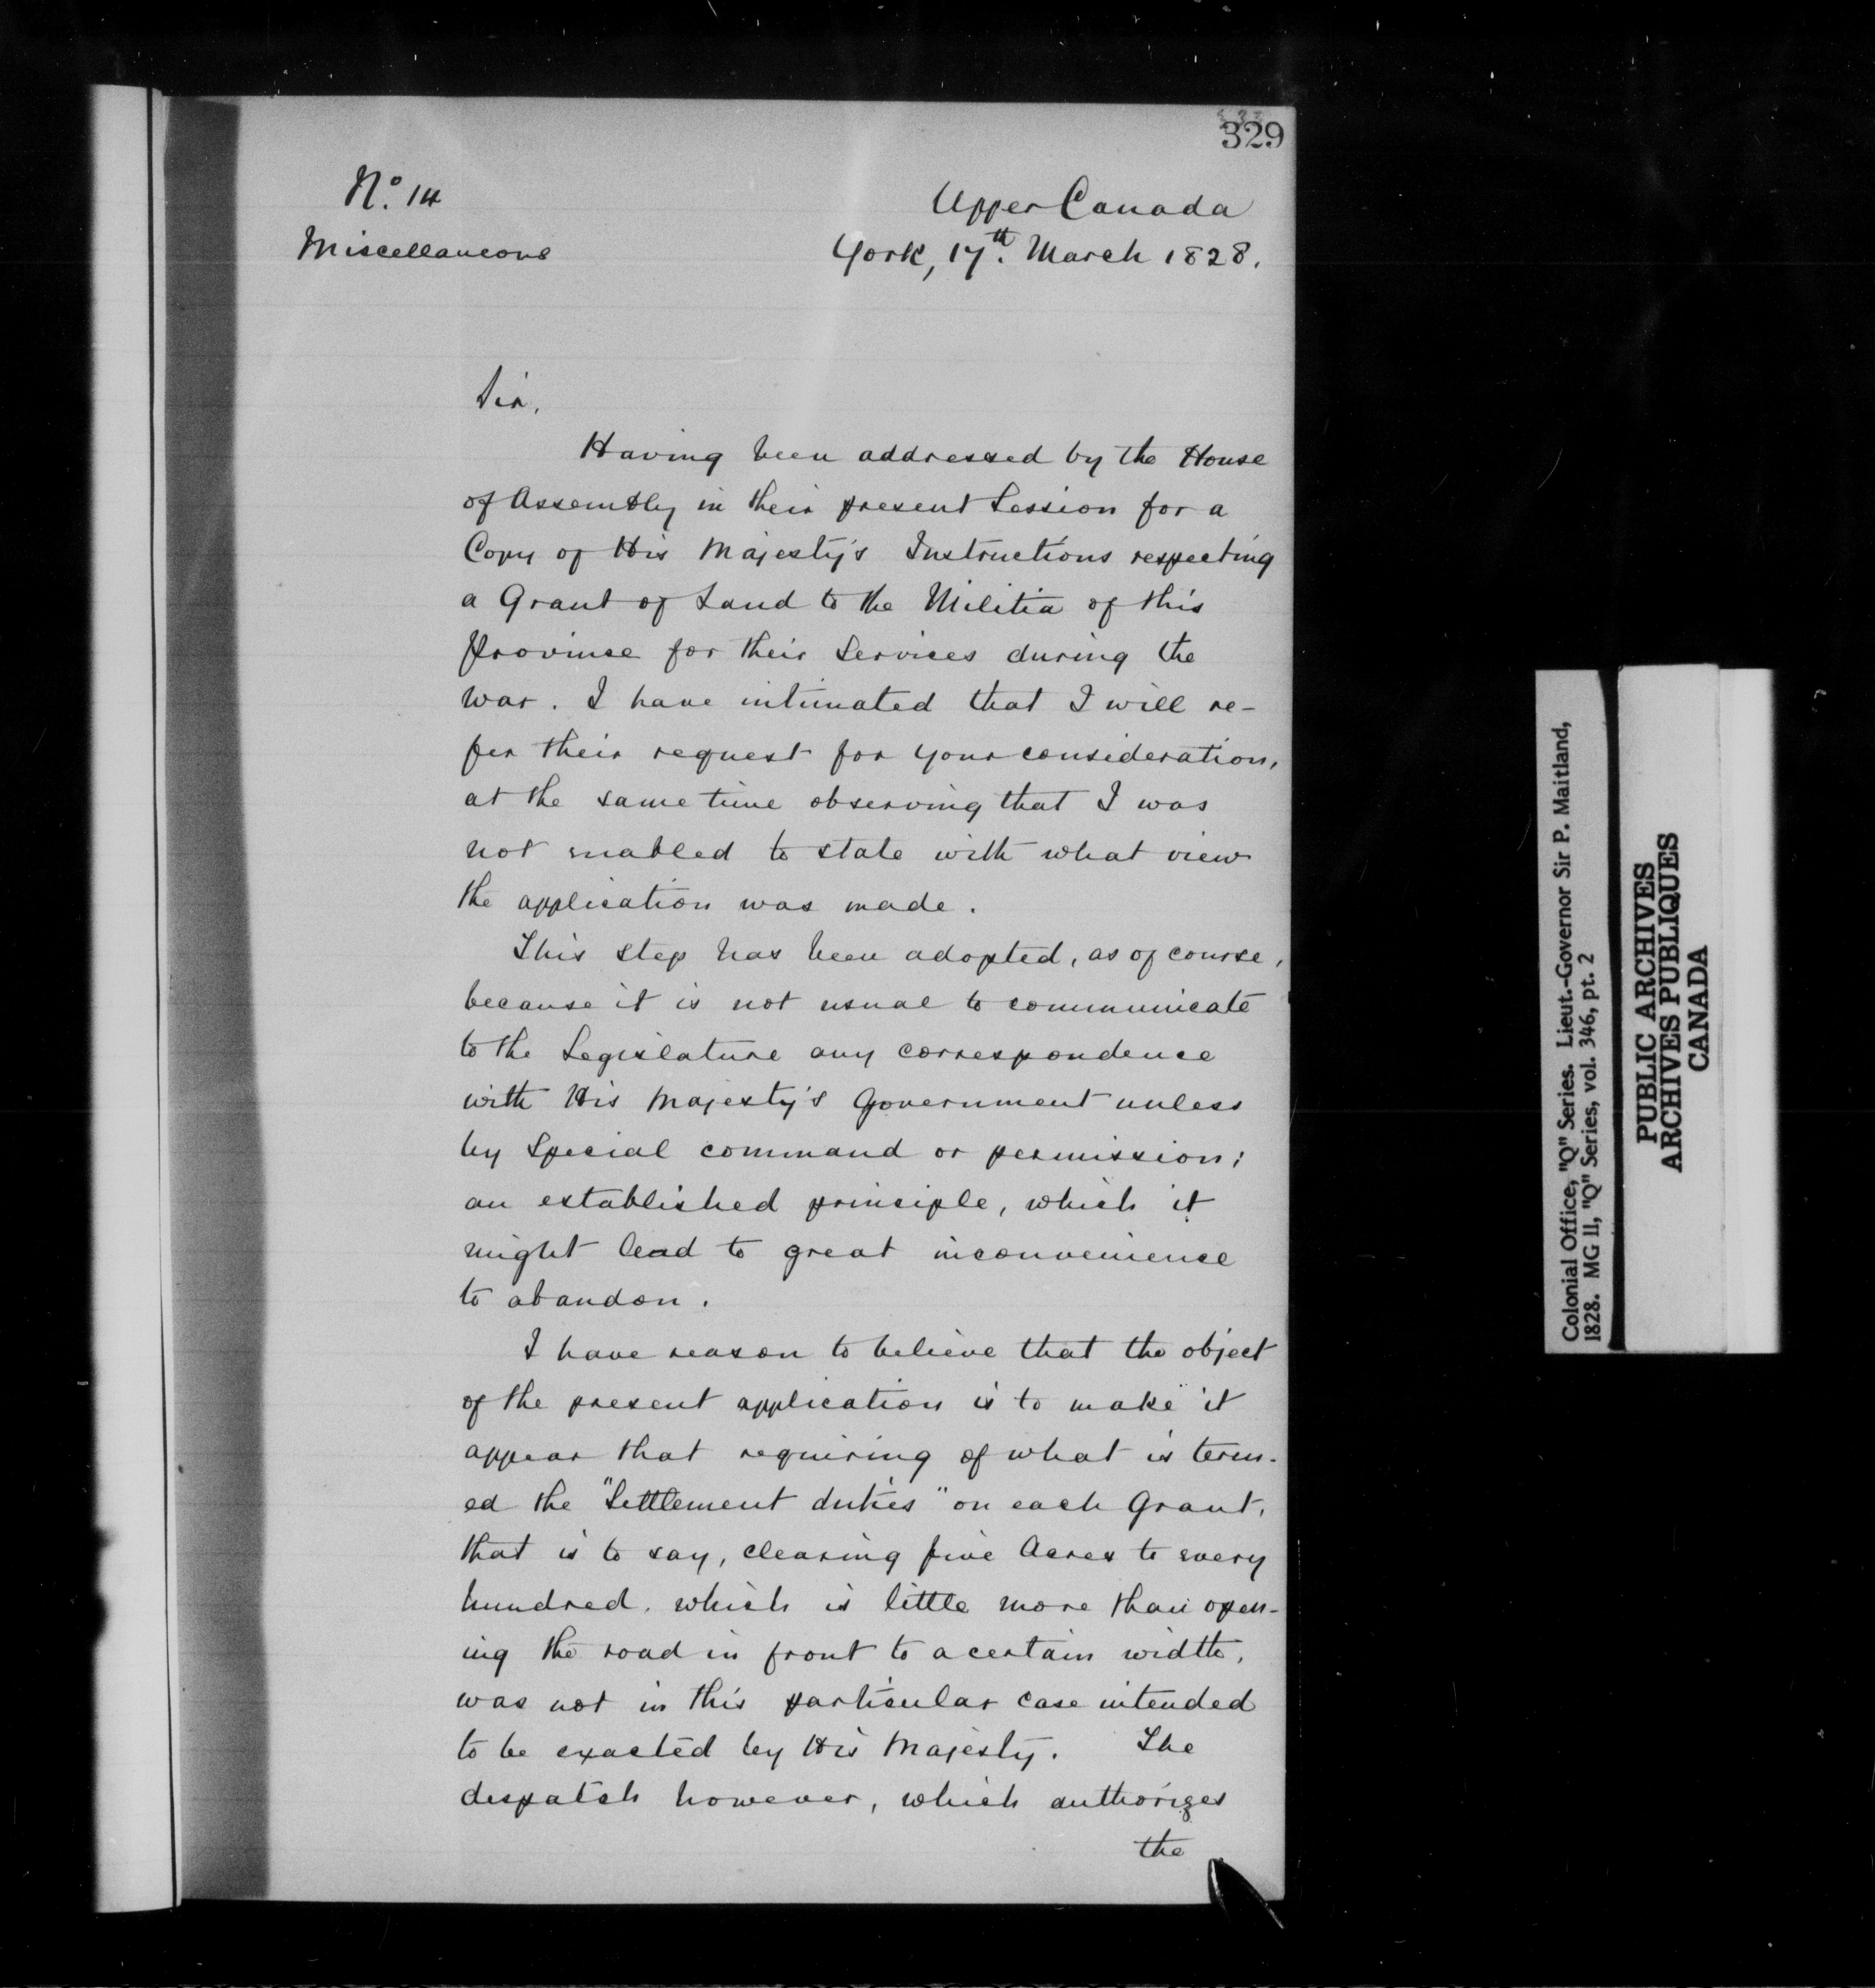 329
No. 14
Miscellaneous
Upper Canada
York, 17th. March 1828.
Sir,
Having been addressed by the House
of Assembly in their present Session for a
Copy of His Majesty's Instructions respecting
a Grant of Land to the Militia of this
Province for their Services during the
War. I have intimated that I will re-
fer their request for your consideration,
at the same time observing that I was
not enabled to state with what view
the application was made.
This step has been adopted, as of course,
because it is not usual to communicate
to the Legislature any correspondence
with His Majesty's Government unless
by Special command or permission;
an established principle, which it
might lead to great inconvenience
to abandon.
I have reason to believe that the object
of the present application is to make it
appear that requiring of what is term-
ed the "Settlement duties" on each Grant,
that is to say, clearing five Acres to every
hundred, which is little more than open-
ing the road in front to a certain width,
was not in this particular case intended
to be exacted by His Majesty. The
despatch however, which authorizes
the
Colonial Office, "Q" Series. Lieut.-Governor Sir P. Maitland,
1828. MG 11, "Q" Series, vol. 346, pt. 2
PUBLIC ARCHIVES
ARCHIVES PUBLIQUES
CANADA